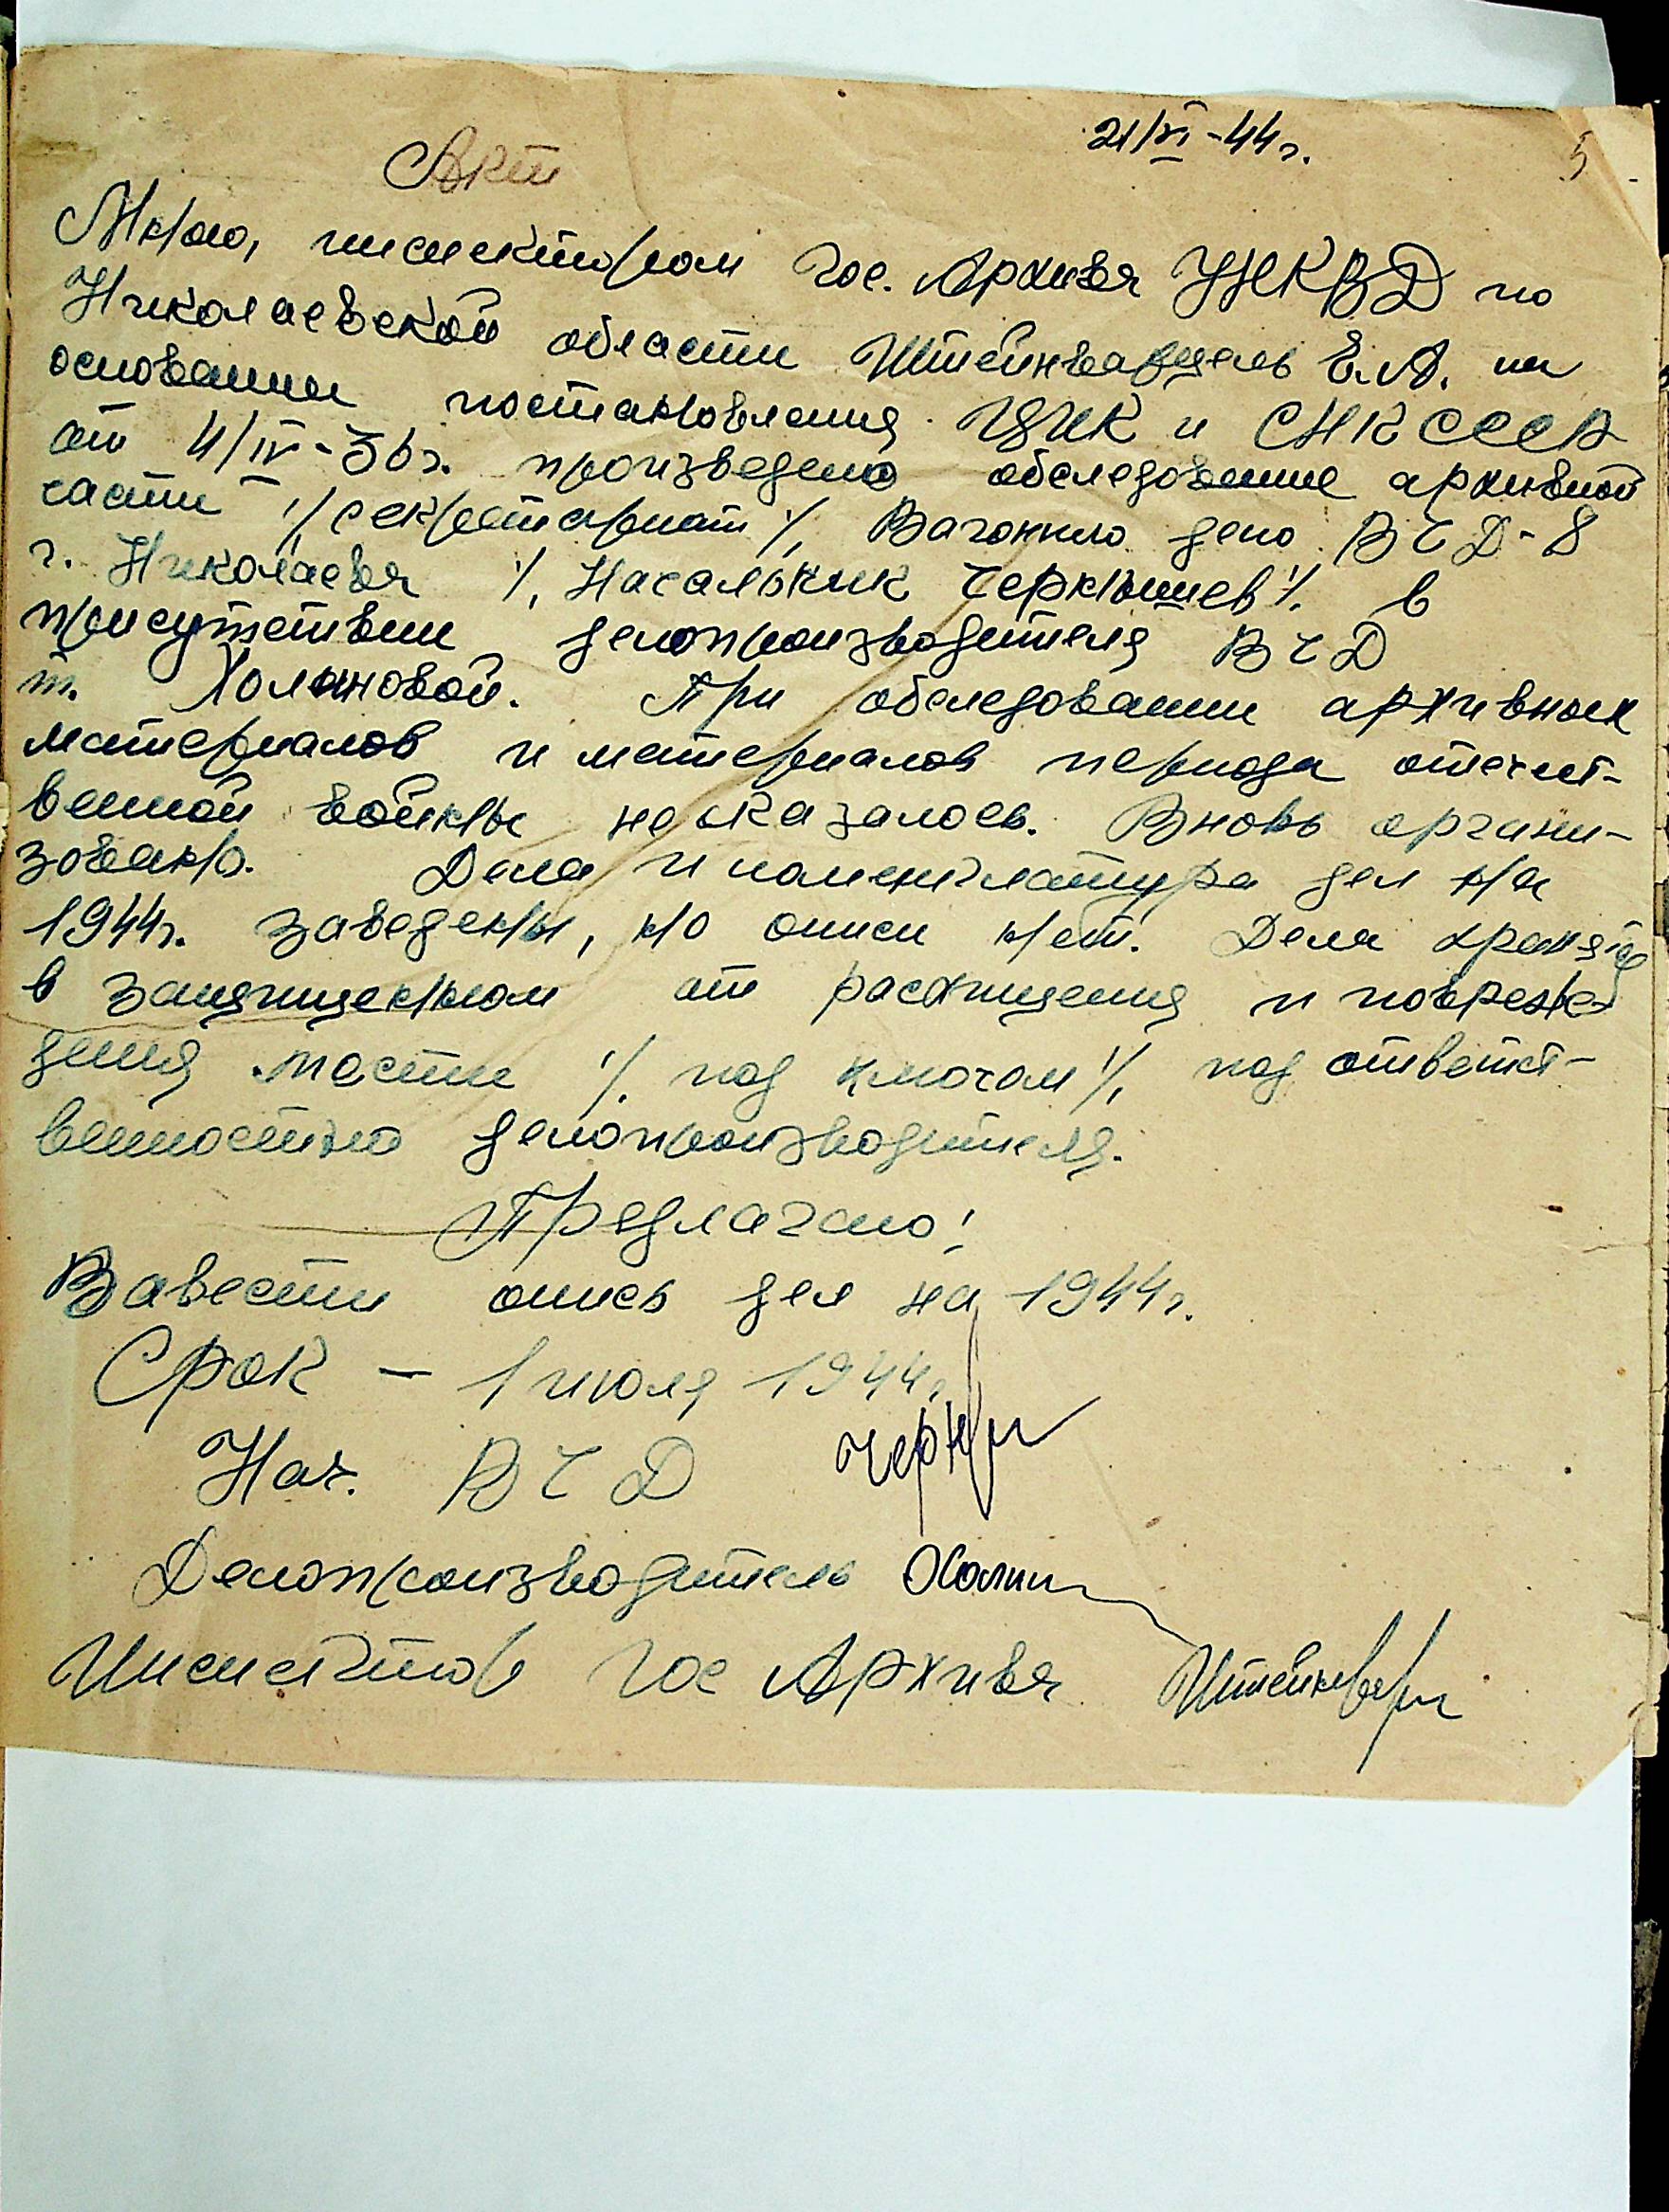 21/VI-44г.
5
Акт
Мною, инспектором Гос. Архива УНКВД по
Николаевской области Е.А. на
основании постановления ЦИК и СНК СССР
от 4/IV-36г. произведено обследование архивной
части ·/.секретариат·/. Вагонного депо ВЧД-8
г. Николаева ·/. Начальник Чернышев·/. в
присутствии делопроизводителя ВЧД
т. Холановой. При обследовании архивных
материалов и материалов периода отечест-
венной войны не оказалось. Вновь органи-
зовано. Дела и номенклатура дел на
1944г. заведены, но описи нет. Дела хранятся
в защищенном от расхищения и повреж-
дения месте ·/. под ключом·/. под ответст-
венностью делопроизводителя.
Предлагаю:
Завести опись дел на 1944г.
Срок — 1 июля 1944г.
Нач. ВЧД
Делопроизводитель
Инспектор Гос Архива